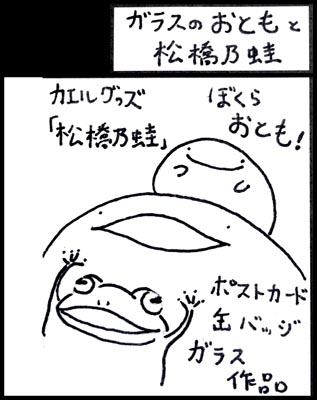 ガラスのおともと
松橋乃蛙
カエルグッズ
「松橋乃蛙」
ぼくら
おとも!
ポストカード
缶バッジ
ガラス
作品